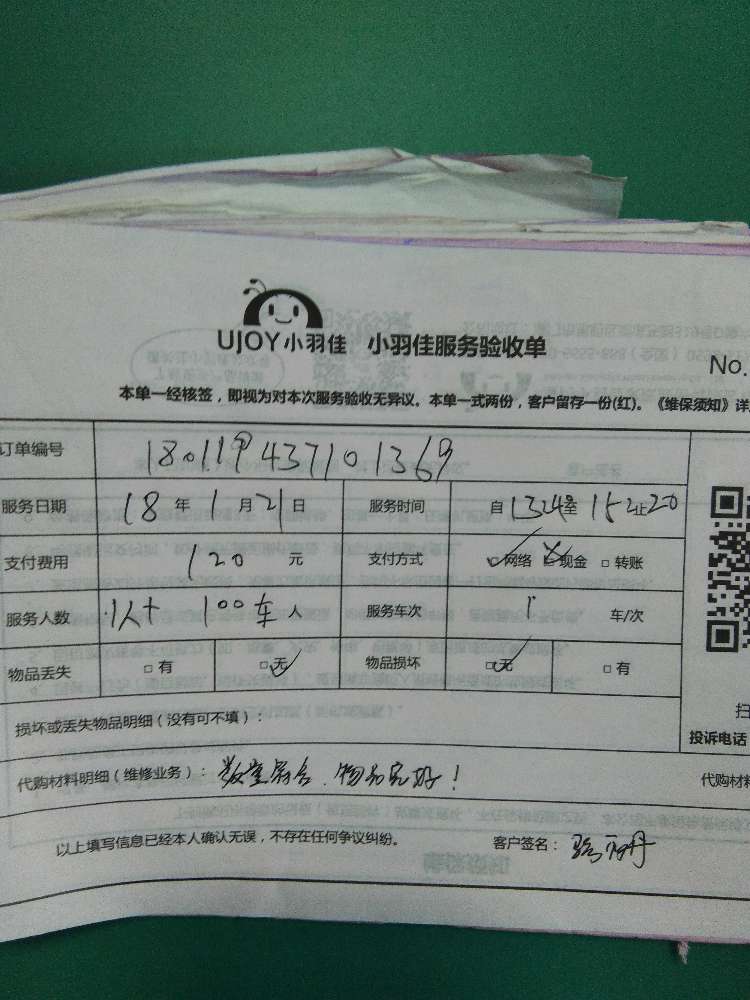 UJOY小羽佳 小羽佳服务验收单
No.
本单一经核签，即视为对本次服务验收无异议。本单一式两份，客户留存一份(红)。《维保须知》详
订单编号 180119437101369
服务日期 18年1月21日 服务时间 自1324至15止20
支付费用 120元 支付方式 网络 现金 转账
服务人数 1人+ 100车人 服务车次 1 车/次
物品丢失 有 无 物品损坏 无 有
扫
损坏或丢失物品明细（没有可不填）：
投诉电话
代购材料明细（维修业务）：数量符合、物品完好！
代购材料
以上填写信息已经本人确认无误，不存在任何争议纠纷。 客户签名：